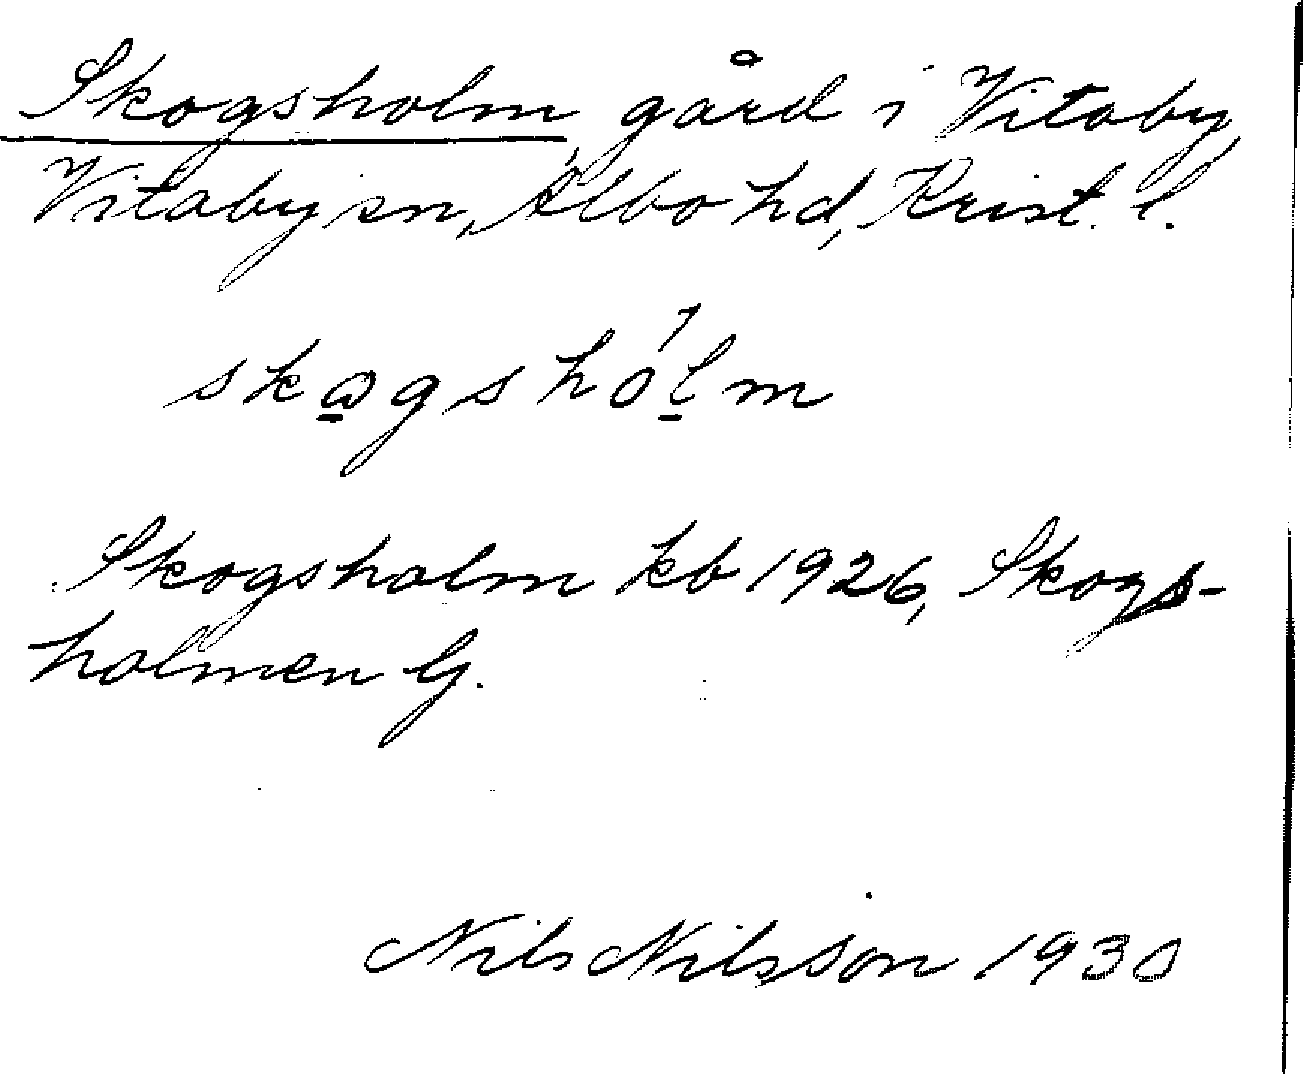 Skogsholm, gård i Vitaby,
Vitaby sn, Albo hd, Krist. l.
skogshólm
Skogsholm kb 1926, Skogs-
holmen G.
Nils Nilsson 1930